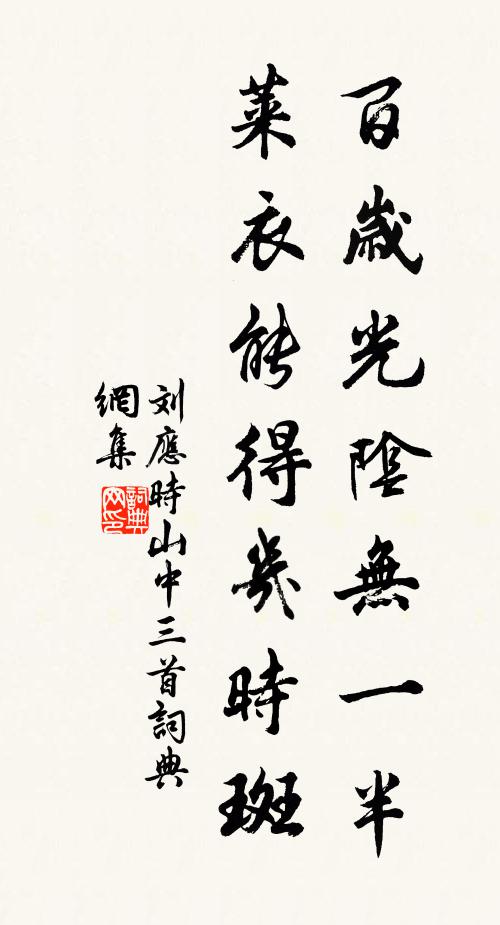 百歲光陰無一半
萊衣能得幾時斑
刘應時山中三首詞典
網集
詞典
网印